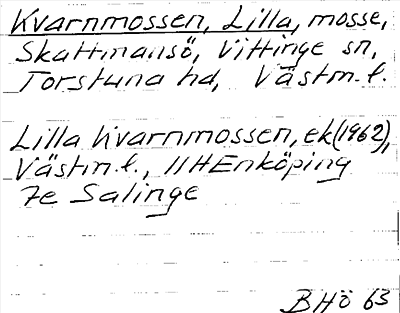 Kvarnmossen, Lilla, mosse,
Skattmansö, Vittinge sn,
Torstuna hd, Västm. l.
Lilla Kvarnmossen, ek (1962),
Västm. l., 11H Enköping
7e Salinge
BHö 63